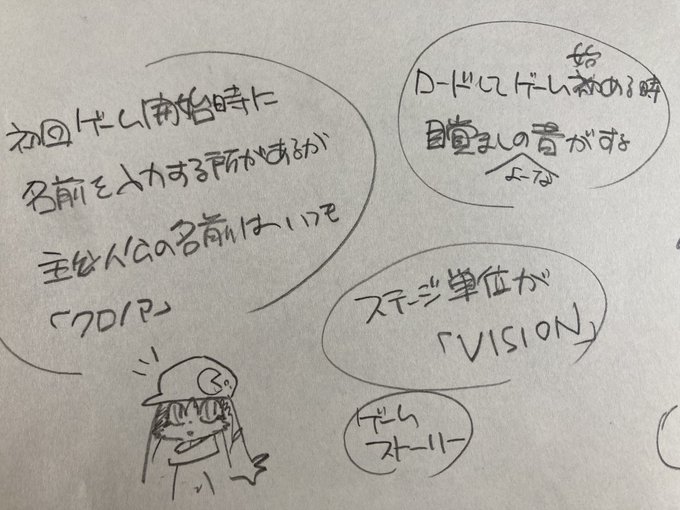 初回ゲーム開始時に
名前を入力する所があるが
主人公の名前はいつも
「クロノア」
ロードしてゲーム始める時
目覚ましの音がする
よーな
ステージ単位が
「VISION」
ゲーム
ストーリー